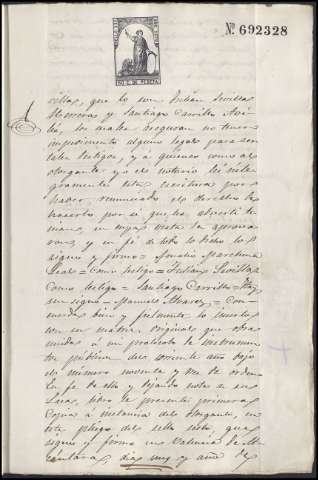 Nº 692328
villas, que lo son Julian Sevillas
Herreros y Santiago Carrillo
los cuales aseguran no tener
impedimento alguno legal para ser
tales testigos, y á quienes como al
otorgante yo el notario leí inte-
gramente esta escritura por
haber renunciado el derecho de
hacerlo por sí que les advertí te-
nian, en cuya vista la aprova-
ron, y en fé de todo lo hecho lo
signo y firmo = Amalio Marchena
Leal = Como testigo = Julian Sevillas
Como testigo = Santiago Carrillo = Hay
un signo = Manuel Alvarez = Con-
cuerda bien y fielmente lo inserto
con su matriz original que obra
unida á mi protocolo de instrumen-
tos publicos del corriente año bajo
el número noventa y de orden
En fé de ello y dejando nota de su
saca, libro la presente primera
copia á instancia del otorgante, en
este pliego del sello que
signo y firmo en Valencia de Al-
cántara, dia mes y año de